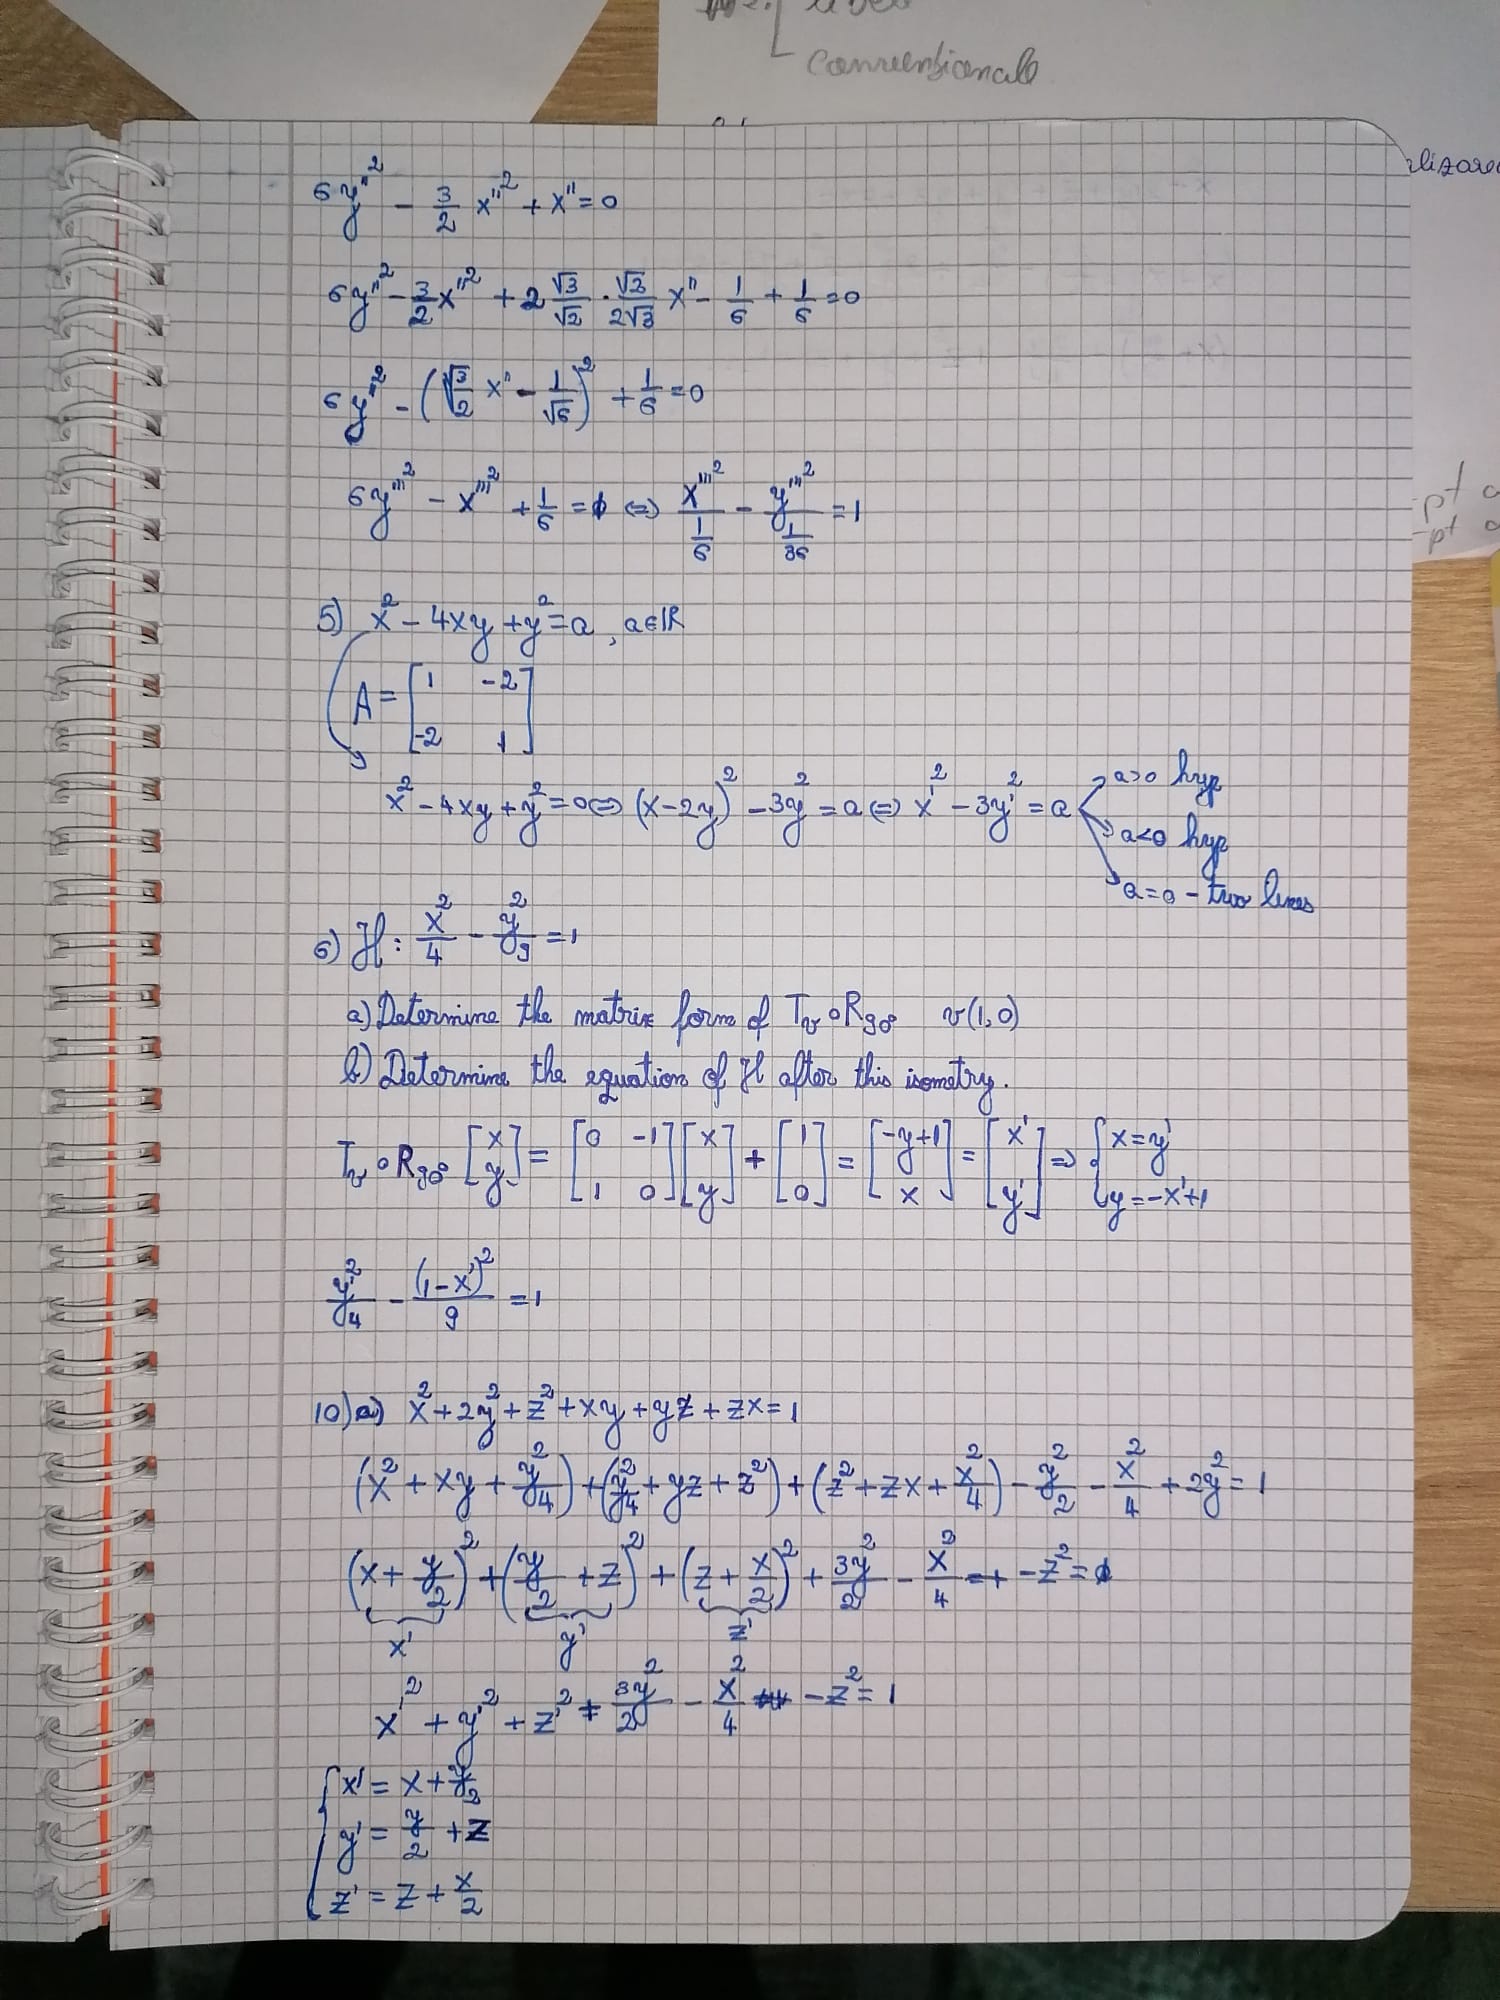 conventionale
6y''² - 3/2 x''² + x'' = 0
6y''² - 3/2 x''² + 2 √3/√2 · √2/2√3 x'' - 1/6 + 1/6 = 0
6y''² - (√3/2 x'' - 1/√6)² + 1/6 = 0
6y'''² - x'''² + 1/6 = 0 ⇔ x'''²/(1/6) - y'''²/(1/36) = 1
5) x² - 4xy + y² = a, a∈ℝ
A = [1 -2; -2 1]
x² - 4xy + y² = 0 ⇔ (x-2y)² - 3y² = a ⇔ x'² - 3y'² = a
a>0 hyp
a<0 hyp
a=0 - two lines
6) ℋ: x²/4 - y²/9 = 1
a) Determine the matrix form of Tv∘R90° v(1,0)
b) Determine the equation of ℋ after this isometry.
Tv∘R90° [x; y] = [0 -1; 1 0][x; y] + [1; 0] = [-y+1; x] = [x'; y'] ⇒ { x = y'; y = -x'+1
y'²/4 - (1-x')²/9 = 1
10) a) x² + 2y² + z² + xy + yz + zx = 1
(x² + xy + y²/4) + (y²/4 + yz + z²) + (z² + zx + x²/4) - y²/2 - x²/4 + 2y² = 1
(x + y/2)² + (y/2 + z)² + (z + x/2)² + 3y²/2 - x²/4 - z² = 1
x' y' z'
x'² + y'² + z'² + 3y²/2 - x²/4 - z² = 1
x' = x + y/2
y' = y/2 + z
z' = z + x/2